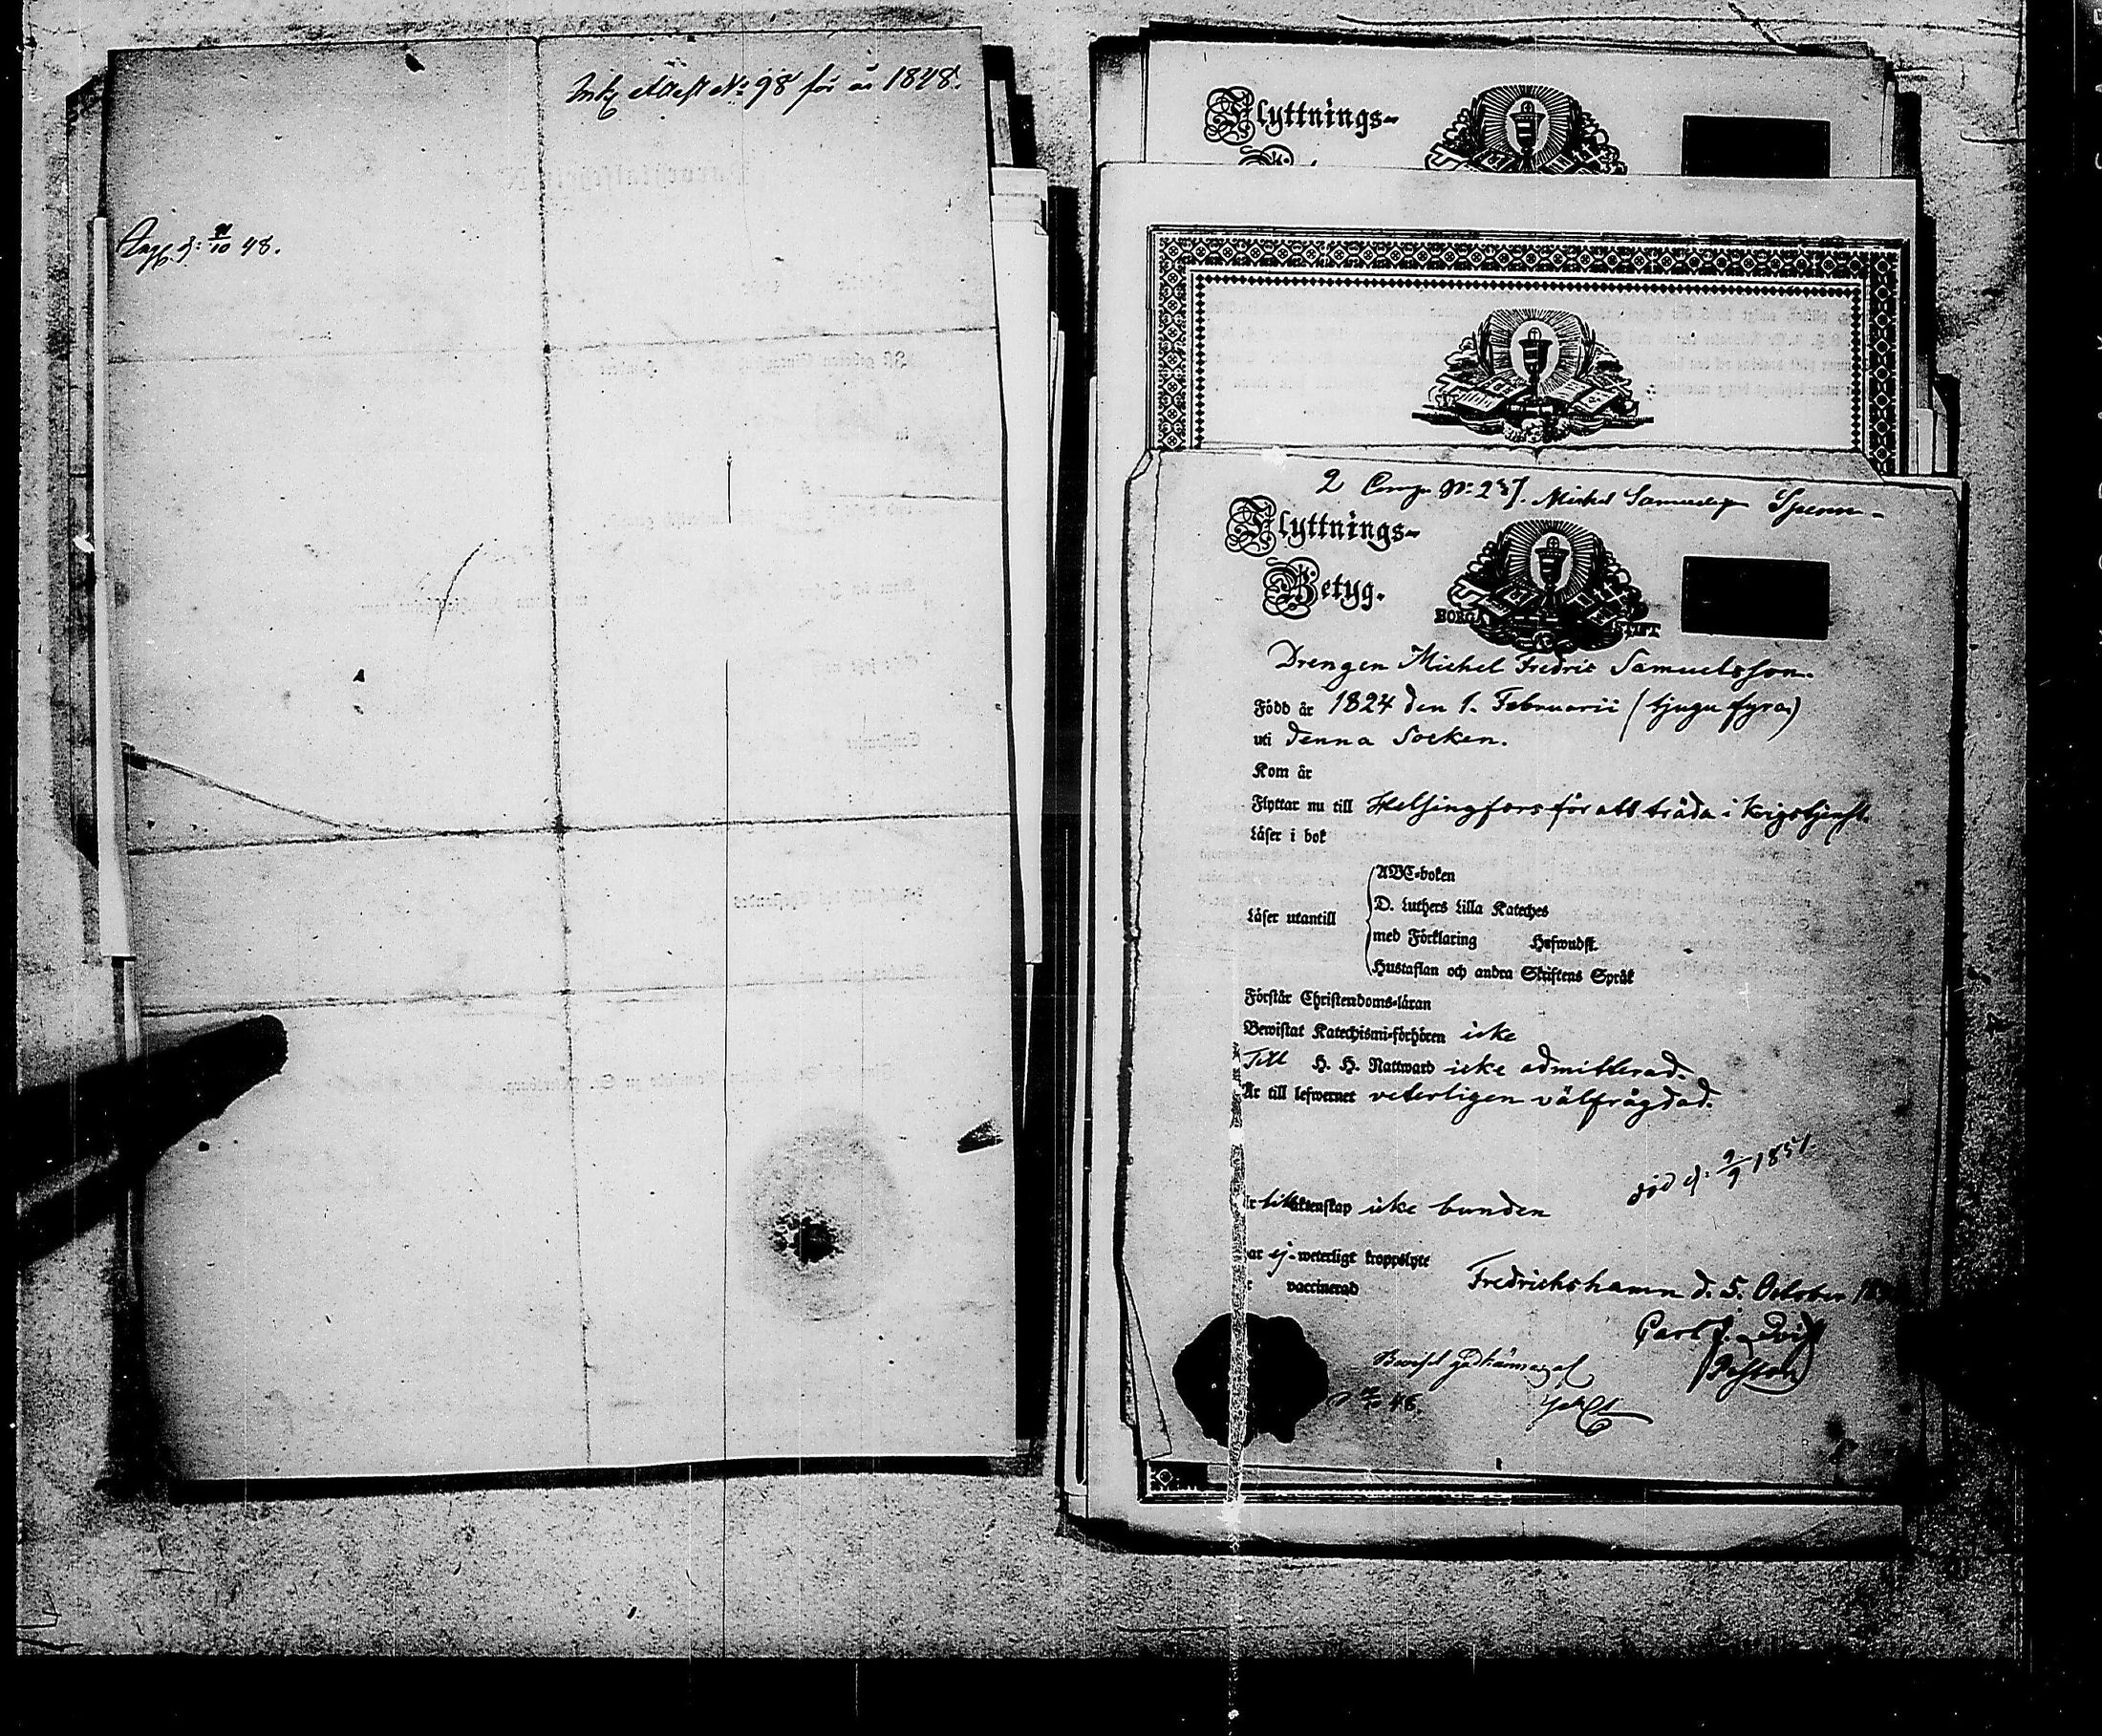 Attest No 98 för år 1848.
48.
Flyttnings-
2 Comp. No 237. Michel Samuelsson
Flyttnings-
Betyg.
BORGÅ STIFT
Drengen Michel Fredric Samuelsson.
Född år 1824 den 1. Februarii (tjugu fyra)
uti denna Socken.
Kom år
Flyttar nu till Helsingfors för att träda i krigstjenst.
Läser i bok
ABC-boken
Läser utantill
D. Luthers Lilla Kateches
med Förklaring Hufwudst.
Hustaflan och andra Skriftens Språk
Förstår Christendoms-läran
Bewistat Katechismi-förhören icke
Till H. H. Nattward icke admitterad.
Är till lefwernet veterligen välfrägdad.
död d: 2/9 1851.
till äktenskap icke bunden
ej weterligt kroppslyte
vaccinerad
Fredrichshamn d. 5. October
Carl
Pastor
48.